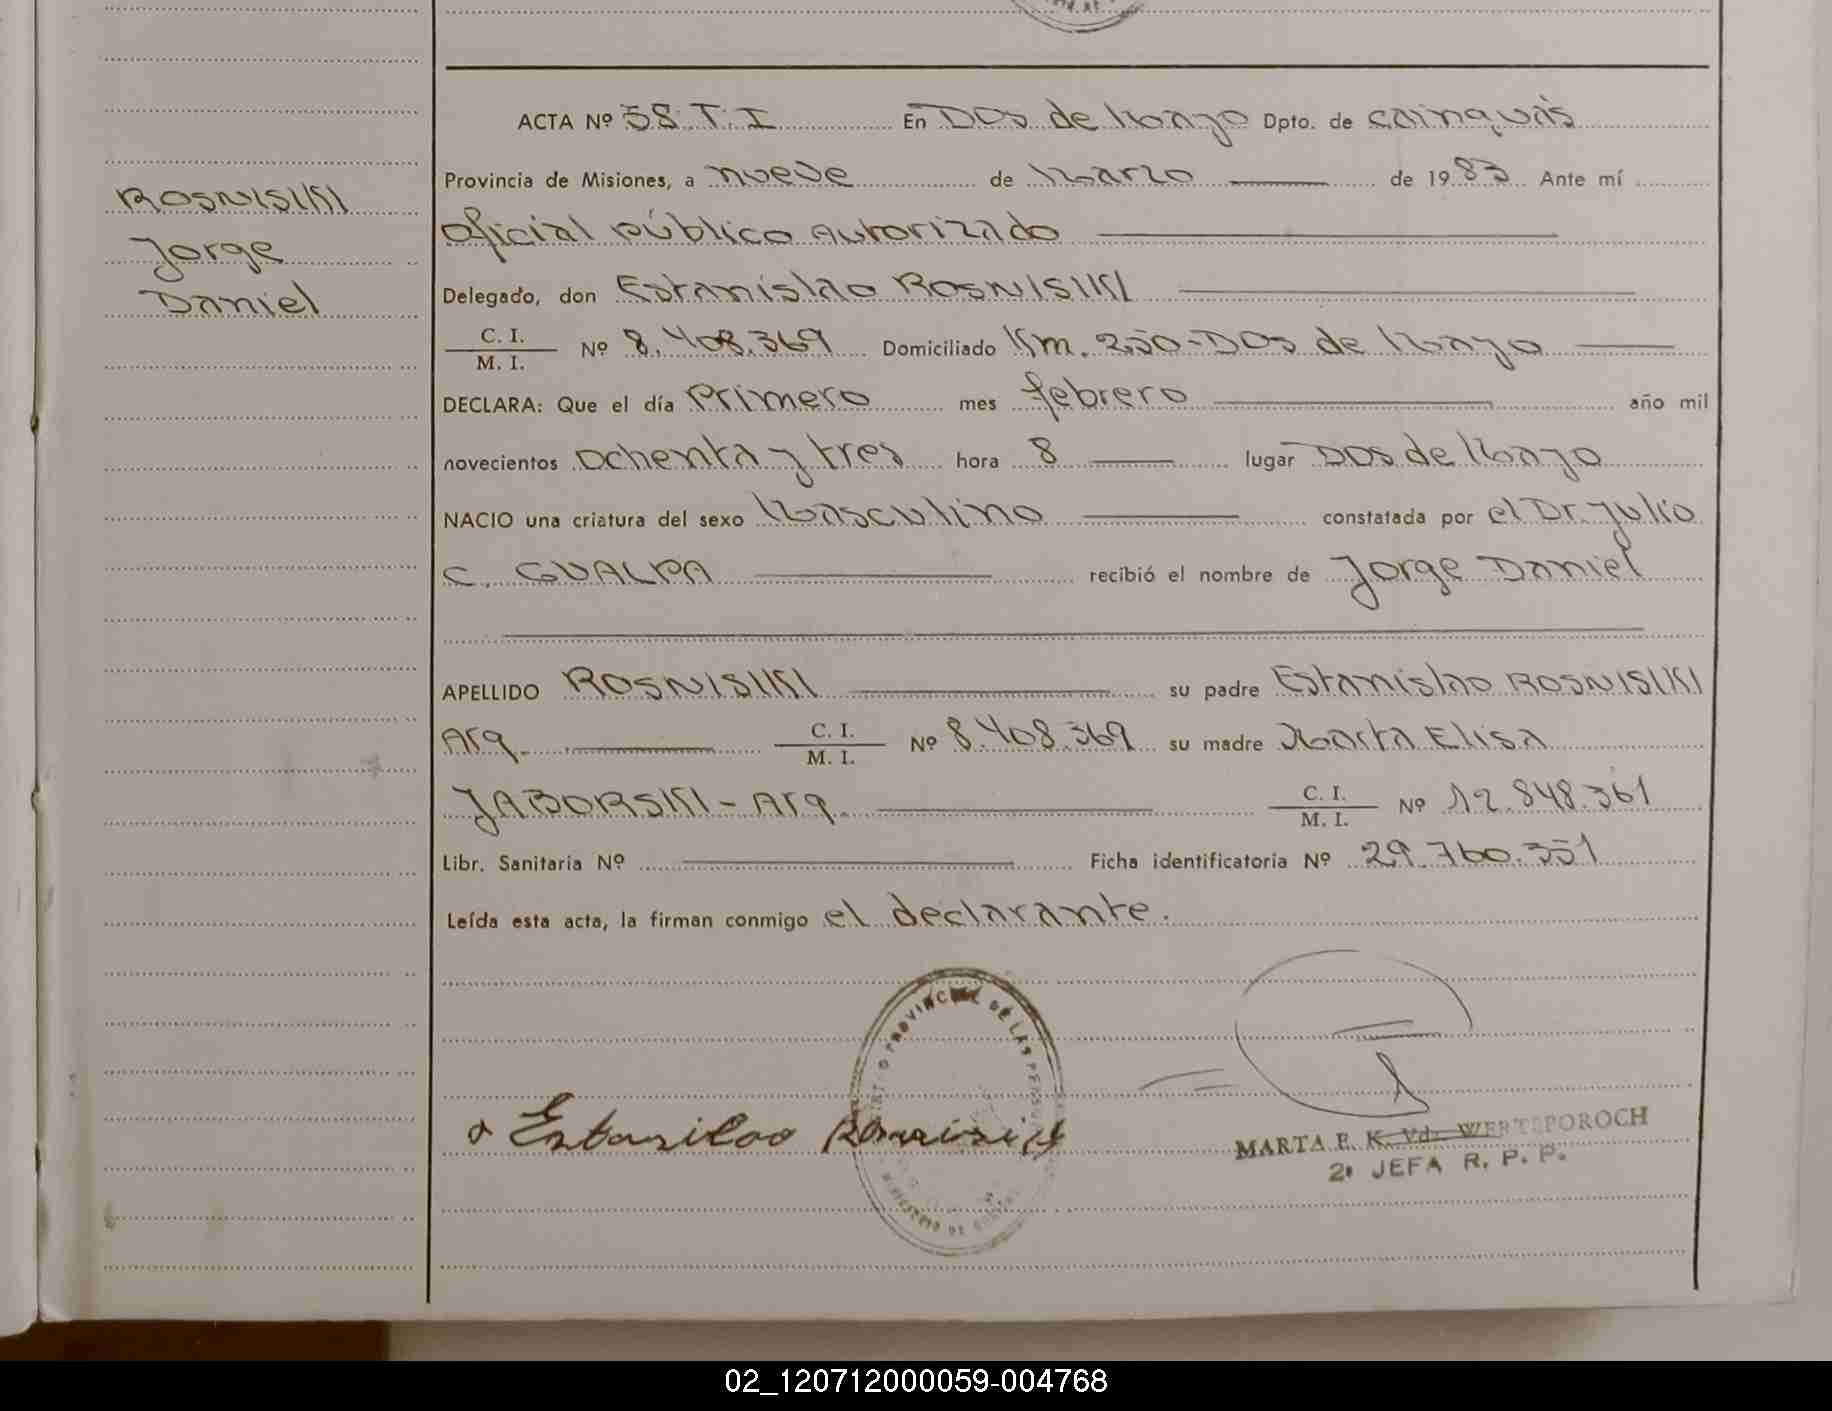 ROSNISIKI
Jorge
Daniel
ACTA Nº 58. T. I En Dos de Mayo Dpto. de cainguás
Provincia de Misiones, a nueve de Marzo de 1983 Ante mí
oficial público Autorizado
Delegado, don Estanislao ROSNISIKI
C. I.
M. I. Nº 8.408.369 Domiciliado Km. 250-Dos de Mayo
DECLARA: Que el día Primero mes febrero año mil
novecientos ochenta y tres hora 8 lugar Dos de Mayo
NACIO una criatura del sexo Masculino constatada por el Dr. Julio
C. GUALPA recibió el nombre de Jorge Daniel
APELLIDO ROSNISIKI su padre Estanislao ROSNISIKI
Arg. C. I.
M. I. Nº 8.408.369 su madre Marta Elisa
JABORSKI - Arg. C. I.
M. I. Nº 12.848.361
Libr. Sanitaria Nº Ficha identificatoria Nº 29.760.351
Leída esta acta, la firman conmigo el declarante.
PROVINCIAL DE LAS PERSO
MINISTERIO DE
MARTA E. K. Vd. WERTEPOROCH
2ª JEFA R. P. P.
02_120712000059-004768